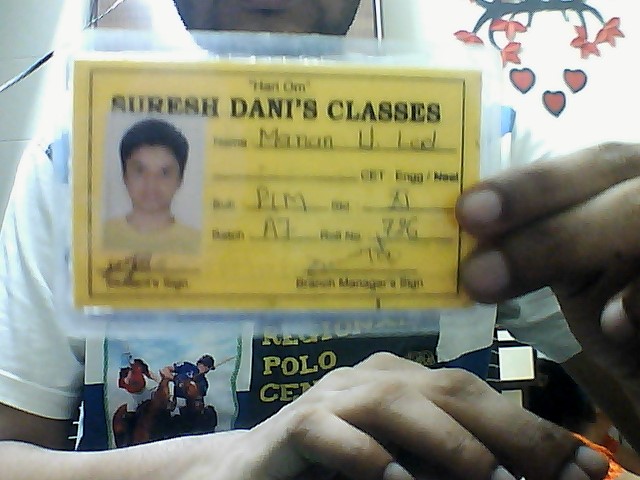 "Hari Om"
SURESH DANI'S CLASSES
Name Manan U. Lad
CET Engg / Neet
Sub PCM Std XI
Batch A7 Roll No. 796
Student's Sign
Branch Manager's Sign
REGIONAL
POLO
CEN